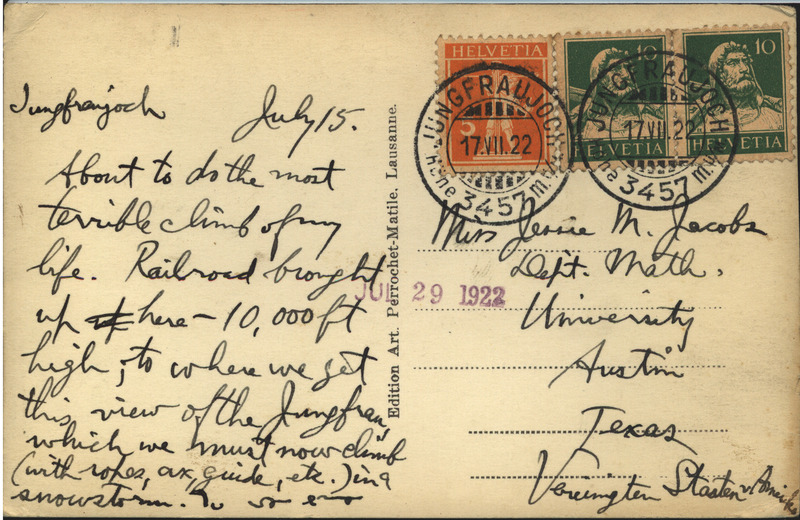 Jungfraujoch July 15.
About to do the most
terrible climb of my
life. Railroad brought
up here – 10,000 ft
high, to where we get
this view of the Jungfrau,
which we must now climb
(with ropes, ax, guide, etc.) in a
snowstorm.
Edition Art. Perrochet-Matile, Lausanne.
HELVETIA
5
10
HELVETIA
10
HELVETIA
JUNGFRAUJOCH
17.VII.22
Höhe 3457 m.ü.M.
JUNGFRAUJOCH
17.VII.22
Höhe 3457 m.ü.M.
JUL 29 1922
Miss Jessie M. Jacobs
Dept. Math.
University
Austin
Texas
Vereinigten Staaten v. Amerika